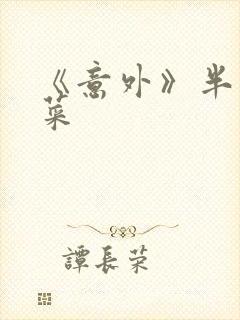 《意外》半
菜
譚長荣